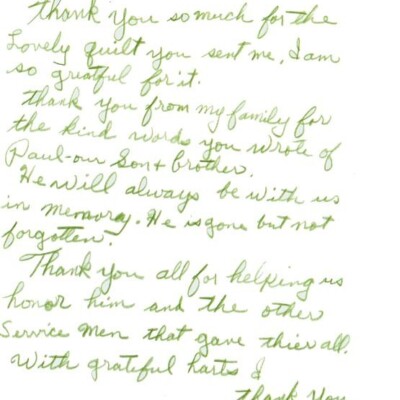 Thank you so much for the
Lovely quilt you sent me, I am
so greatful for it.
Thank you from my family for
the kind words you wrote of
Paul-our Son & brother.
He will always be with us
in memory. He is gone but not
forgotten.
Thank you all for helping us
honor him and the other
Service Men that gave thier all.
With grateful harts I
Thank You